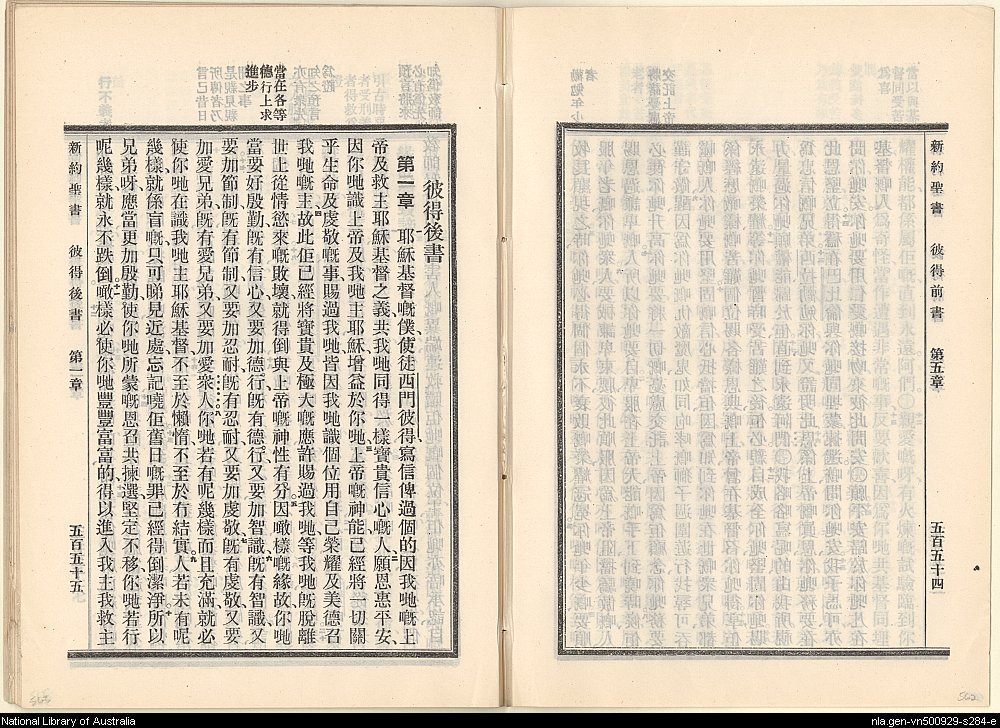 新約聖書　彼得前書　第五章　五百五十四
彼得後書
第一章　耶穌基督嘅僕使徒西門彼得、寫信俾過個的因我哋嘅上
帝及救主耶穌基督之義共我哋同得一樣寶貴信心嘅人、願恩惠平安、
因你哋識上帝及我哋主耶穌、增益於你哋、上帝嘅神能已經將一切關
乎生命及虔敬嘅事賜過我哋、皆因我哋識個位用自己榮耀及美德召
我哋嘅主、故此佢已經將寶貴及極大嘅應許賜過我哋、等我哋既脫離
世上從情慾來嘅敗壞、就得倒與上帝嘅神性有分、因噉樣嘅緣故、你哋
當要好殷勤、既有信心、又要加德行、既有德行、又要加智識、既有智識、又
要加節制、既有節制、又要加忍耐、既有忍耐、又要加虔敬、既有虔敬、又要
加愛兄弟、既有愛兄弟、又要加愛衆人、你哋若有呢幾樣、而且充滿、就必
使你哋在識我哋主耶穌基督、不至於懶惰、不至於冇結實、人若未有呢
幾樣、就係盲嘅、只可睇見近處、忘記曉佢舊日嘅罪已經得倒潔淨、所以
兄弟呀、應當更加殷勤、使你哋所蒙嘅恩召共揀選堅定不移、你哋若行
呢幾樣、就永不跌倒、噉樣必使你哋豐豐富富的得以進入我主我救主
當在各等
德行上求
進步
新約聖書　彼得後書　第一章　五百五十五
562
National Library of Australia
nla.gen-vn500929-s284-e